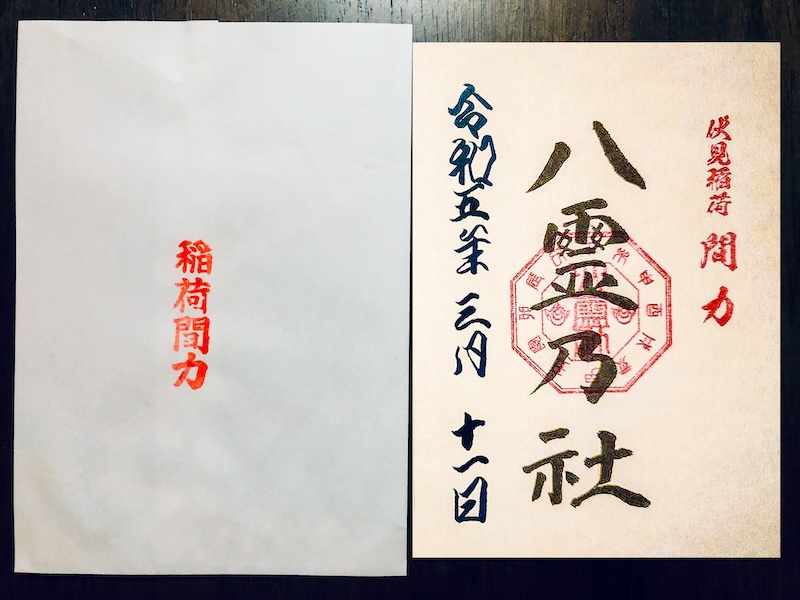 稲荷間力
伏見稲荷 間力
八霊乃社
令和五年 三月 十一日